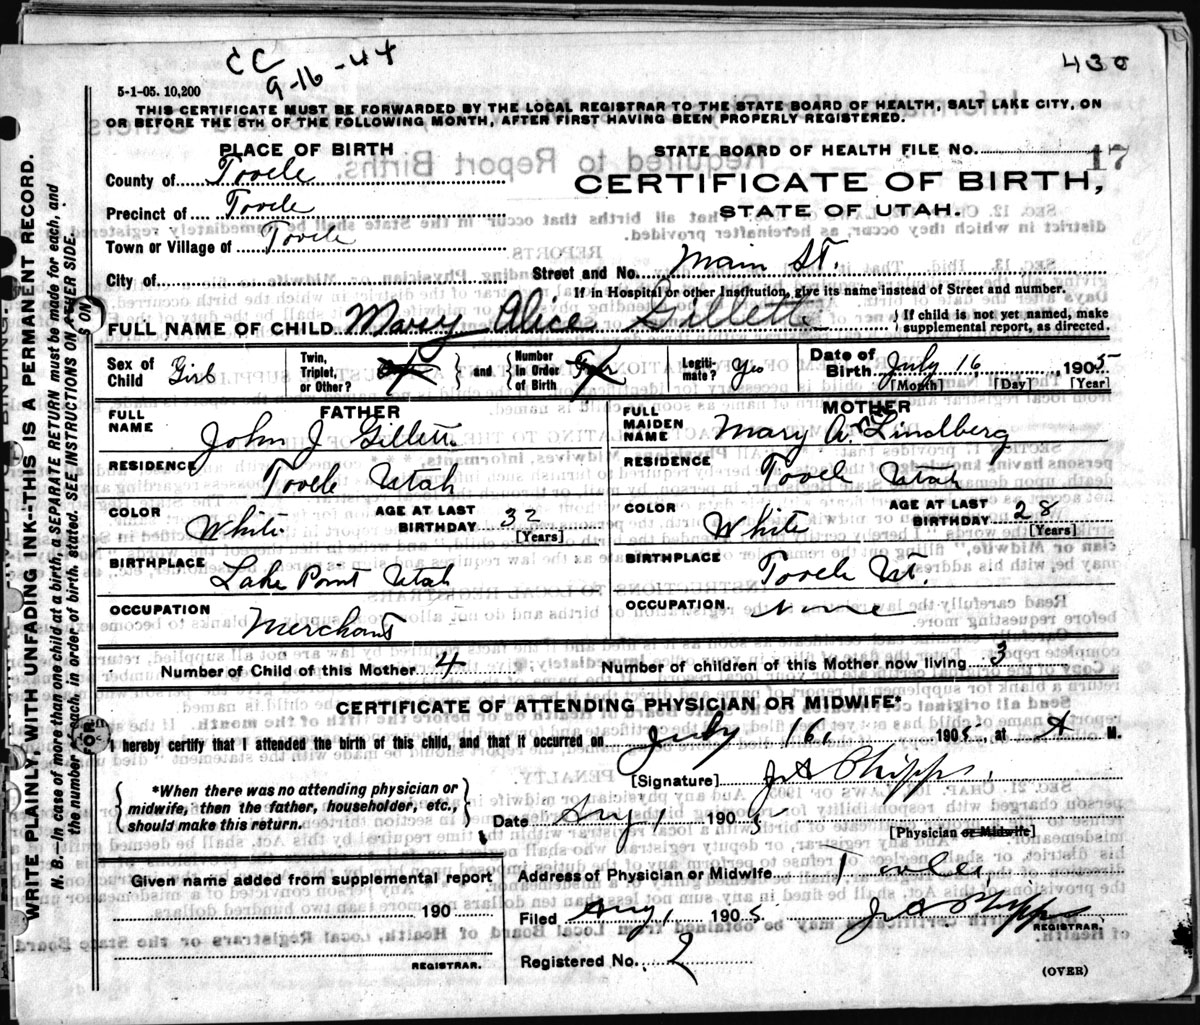 CC
9-16-44
430
5-1-05. 10,200
THIS CERTIFICATE MUST BE FORWARDED BY THE LOCAL REGISTRAR TO THE STATE BOARD OF HEALTH, SALT LAKE CITY, ON
OR BEFORE THE 5TH OF THE FOLLOWING MONTH, AFTER FIRST HAVING BEEN PROPERLY REGISTERED.
PLACE OF BIRTH
County of Tooele
Precinct of Tooele
Town or Village of Tooele
City of
STATE BOARD OF HEALTH FILE NO. 17
CERTIFICATE OF BIRTH,
STATE OF UTAH.
Street and No. Main St.
If in Hospital or other Institution, give its name instead of Street and number.
FULL NAME OF CHILD Mary Alice Gillette
If child is not yet named, make
supplemental report, as directed.
Sex of Child Girl
Twin, Triplet, or Other?
and
Number In Order of Birth
Legiti-mate? Yes
Date of Birth July 16 1905
[Month] [Day] [Year]
FATHER
FULL NAME John J Gillette
RESIDENCE Tooele Utah
COLOR White
AGE AT LAST BIRTHDAY 33
[Years]
BIRTHPLACE Lake Point Utah
OCCUPATION Merchant
MOTHER
FULL MAIDEN NAME Mary A. Lindberg
RESIDENCE Tooele Utah
COLOR White
AGE AT LAST BIRTHDAY 28
[Years]
BIRTHPLACE Tooele Ut.
OCCUPATION None
Number of Child of this Mother 4
Number of children of this Mother now living 3
CERTIFICATE OF ATTENDING PHYSICIAN OR MIDWIFE*
I hereby certify that I attended the birth of this child, and that it occurred on July 16, 1905, at A M.
*When there was no attending physician or
midwife, then the father, householder, etc.,
should make this return.
[Signature] J A Phipps.
Date Aug 1 1905
[Physician or Midwife]
Given name added from supplemental report
190
REGISTRAR.
Address of Physician or Midwife Tooele,
Filed Aug 1 1905 J. A. Phipps
REGISTRAR.
Registered No. 2
(OVER)
WRITE PLAINLY, WITH UNFADING INK--THIS IS A PERMANENT RECORD.
N. B.—In case of more than one child at a birth, a SEPARATE RETURN must be made for each, and
the number of each, in order of birth, stated. SEE INSTRUCTIONS ON OTHER SIDE.